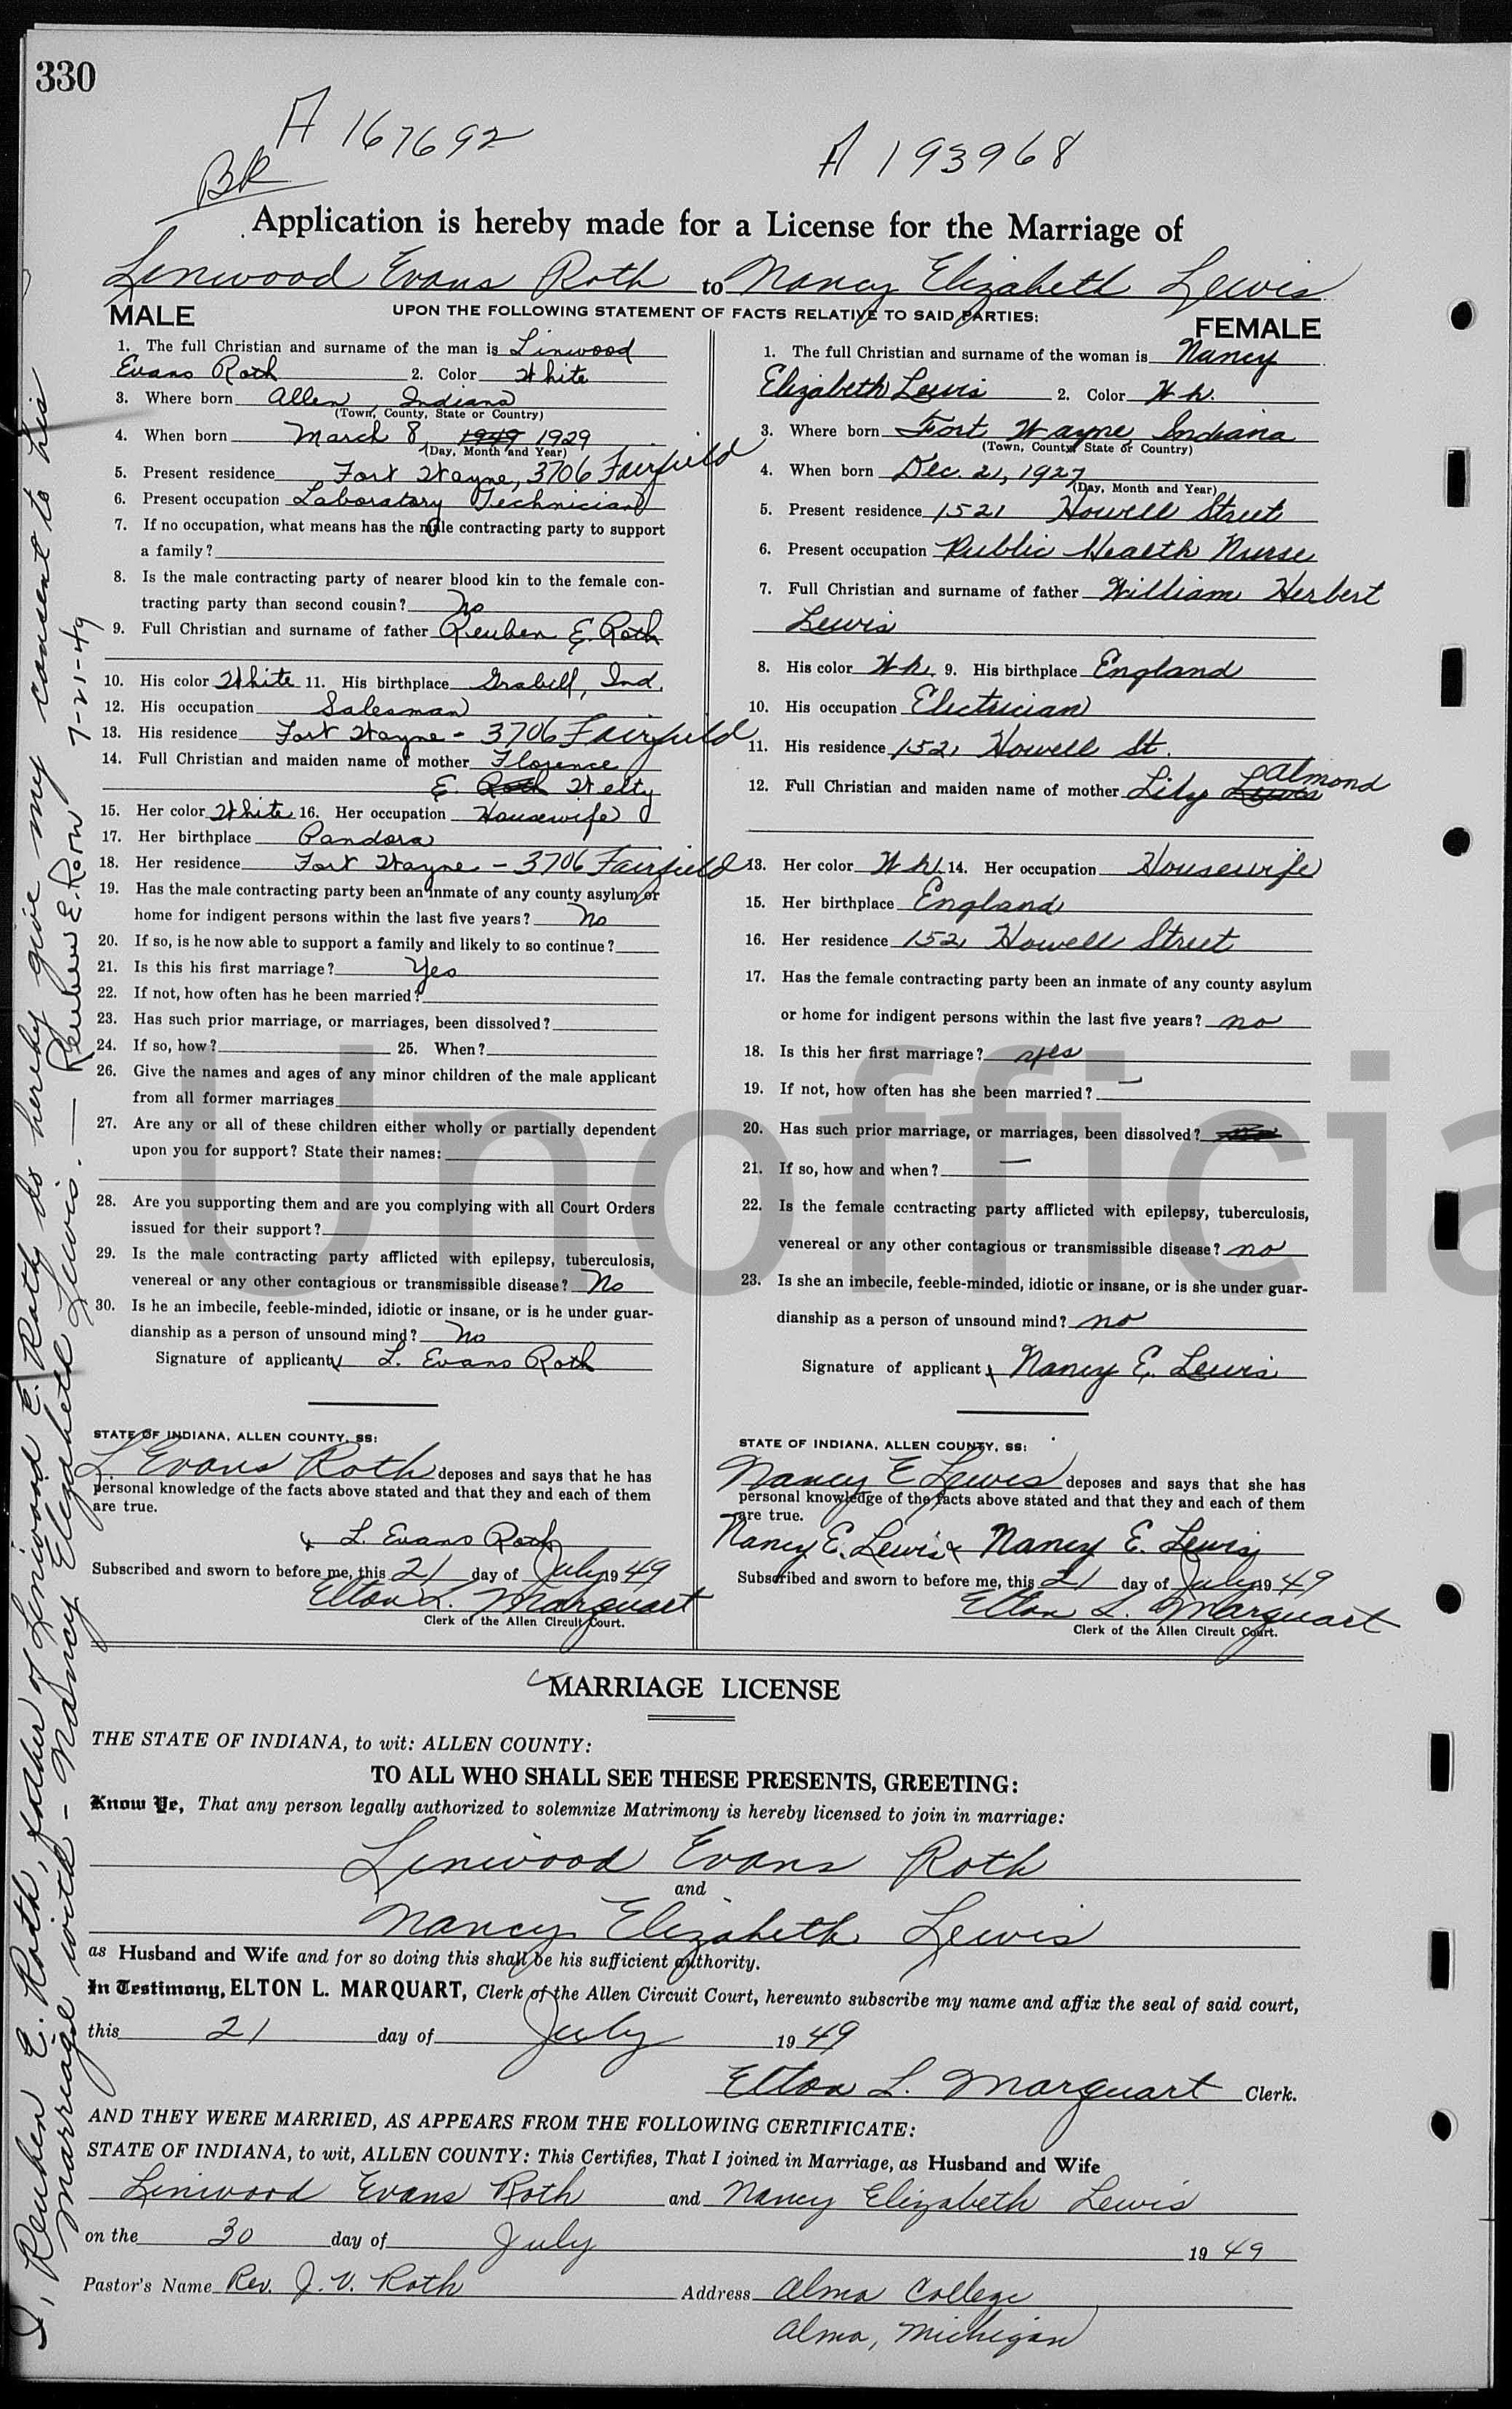 330
A 167692
A 193968
BR
Application is hereby made for a License for the Marriage of
Linwood Evans Roth to Nancy Elizabeth Lewis
UPON THE FOLLOWING STATEMENT OF FACTS RELATIVE TO SAID PARTIES:
MALE
1. The full Christian and surname of the man is Linwood
Evans Roth 2. Color White
3. Where born Allen, Indiana
(Town, County, State or Country)
4. When born March 8, 1949 1929
(Day, Month and Year)
5. Present residence Fort Wayne, 3706 Fairfield
6. Present occupation Laboratory Technician
7. If no occupation, what means has the male contracting party to support
a family?
8. Is the male contracting party of nearer blood kin to the female con-
tracting party than second cousin? No
9. Full Christian and surname of father Reuben E. Roth
10. His color White 11. His birthplace Grabill, Ind.
12. His occupation Salesman
13. His residence Fort Wayne - 3706 Fairfield
14. Full Christian and maiden name of mother Florence
E. Roth Welty
15. Her color White 16. Her occupation Housewife
17. Her birthplace Pandora
18. Her residence Fort Wayne - 3706 Fairfield
19. Has the male contracting party been an inmate of any county asylum or
home for indigent persons within the last five years? No
20. If so, is he now able to support a family and likely to so continue?
21. Is this his first marriage? Yes
22. If not, how often has he been married?
23. Has such prior marriage, or marriages, been dissolved?
24. If so, how? 25. When?
26. Give the names and ages of any minor children of the male applicant
from all former marriages
27. Are any or all of these children either wholly or partially dependent
upon you for support? State their names:
28. Are you supporting them and are you complying with all Court Orders
issued for their support?
29. Is the male contracting party afflicted with epilepsy, tuberculosis,
venereal or any other contagious or transmissible disease? No
30. Is he an imbecile, feeble-minded, idiotic or insane, or is he under guar-
dianship as a person of unsound mind? No
Signature of applicant x L. Evans Roth
STATE OF INDIANA, ALLEN COUNTY, SS:
L. Evans Roth deposes and says that he has
personal knowledge of the facts above stated and that they and each of them
are true.
x L. Evans Roth
Subscribed and sworn to before me, this 21 day of July 1949
Elton L. Marquart
Clerk of the Allen Circuit Court.
FEMALE
1. The full Christian and surname of the woman is Nancy
Elizabeth Lewis 2. Color Wh.
3. Where born Fort Wayne, Indiana
(Town, County, State or Country)
4. When born Dec. 21, 1927
(Day, Month and Year)
5. Present residence 1521 Howell Street
6. Present occupation Public Health Nurse
7. Full Christian and surname of father William Herbert
Lewis
8. His color Wh. 9. His birthplace England
10. His occupation Electrician
11. His residence 1521 Howell St.
12. Full Christian and maiden name of mother Lily Almond
13. Her color Wh. 14. Her occupation Housewife
15. Her birthplace England
16. Her residence 1521 Howell Street
17. Has the female contracting party been an inmate of any county asylum
or home for indigent persons within the last five years? no
18. Is this her first marriage? yes
19. If not, how often has she been married? —
20. Has such prior marriage, or marriages, been dissolved?
21. If so, how and when? —
22. Is the female contracting party afflicted with epilepsy, tuberculosis,
venereal or any other contagious or transmissible disease? no
23. Is she an imbecile, feeble-minded, idiotic or insane, or is she under guar-
dianship as a person of unsound mind? no
Signature of applicant x Nancy E. Lewis
STATE OF INDIANA, ALLEN COUNTY, SS:
Nancy E Lewis deposes and says that she has
personal knowledge of the facts above stated and that they and each of them
are true.
Nancy E. Lewis x Nancy E. Lewis
Subscribed and sworn to before me, this 21 day of July 1949
Elton L. Marquart
Clerk of the Allen Circuit Court.
MARRIAGE LICENSE
THE STATE OF INDIANA, to wit: ALLEN COUNTY:
TO ALL WHO SHALL SEE THESE PRESENTS, GREETING:
Know Ye, That any person legally authorized to solemnize Matrimony is hereby licensed to join in marriage:
Linwood Evans Roth
and
Nancy Elizabeth Lewis
as Husband and Wife and for so doing this shall be his sufficient authority.
In Testimony, ELTON L. MARQUART, Clerk of the Allen Circuit Court, hereunto subscribe my name and affix the seal of said court,
this 21 day of July 1949
Elton L. Marquart Clerk.
AND THEY WERE MARRIED, AS APPEARS FROM THE FOLLOWING CERTIFICATE:
STATE OF INDIANA, to wit, ALLEN COUNTY: This Certifies, That I joined in Marriage, as Husband and Wife
Linwood Evans Roth and Nancy Elizabeth Lewis
on the 30 day of July 1949
Pastor's Name Rev. J. V. Roth Address Alma College
Alma, Michigan
I, Reuben E. Roth, father of Linwood E. Roth, do hereby give my consent to his
marriage with - Nancy Elizabeth Lewis. — Reuben E. Roth 7-21-49
Unofficia